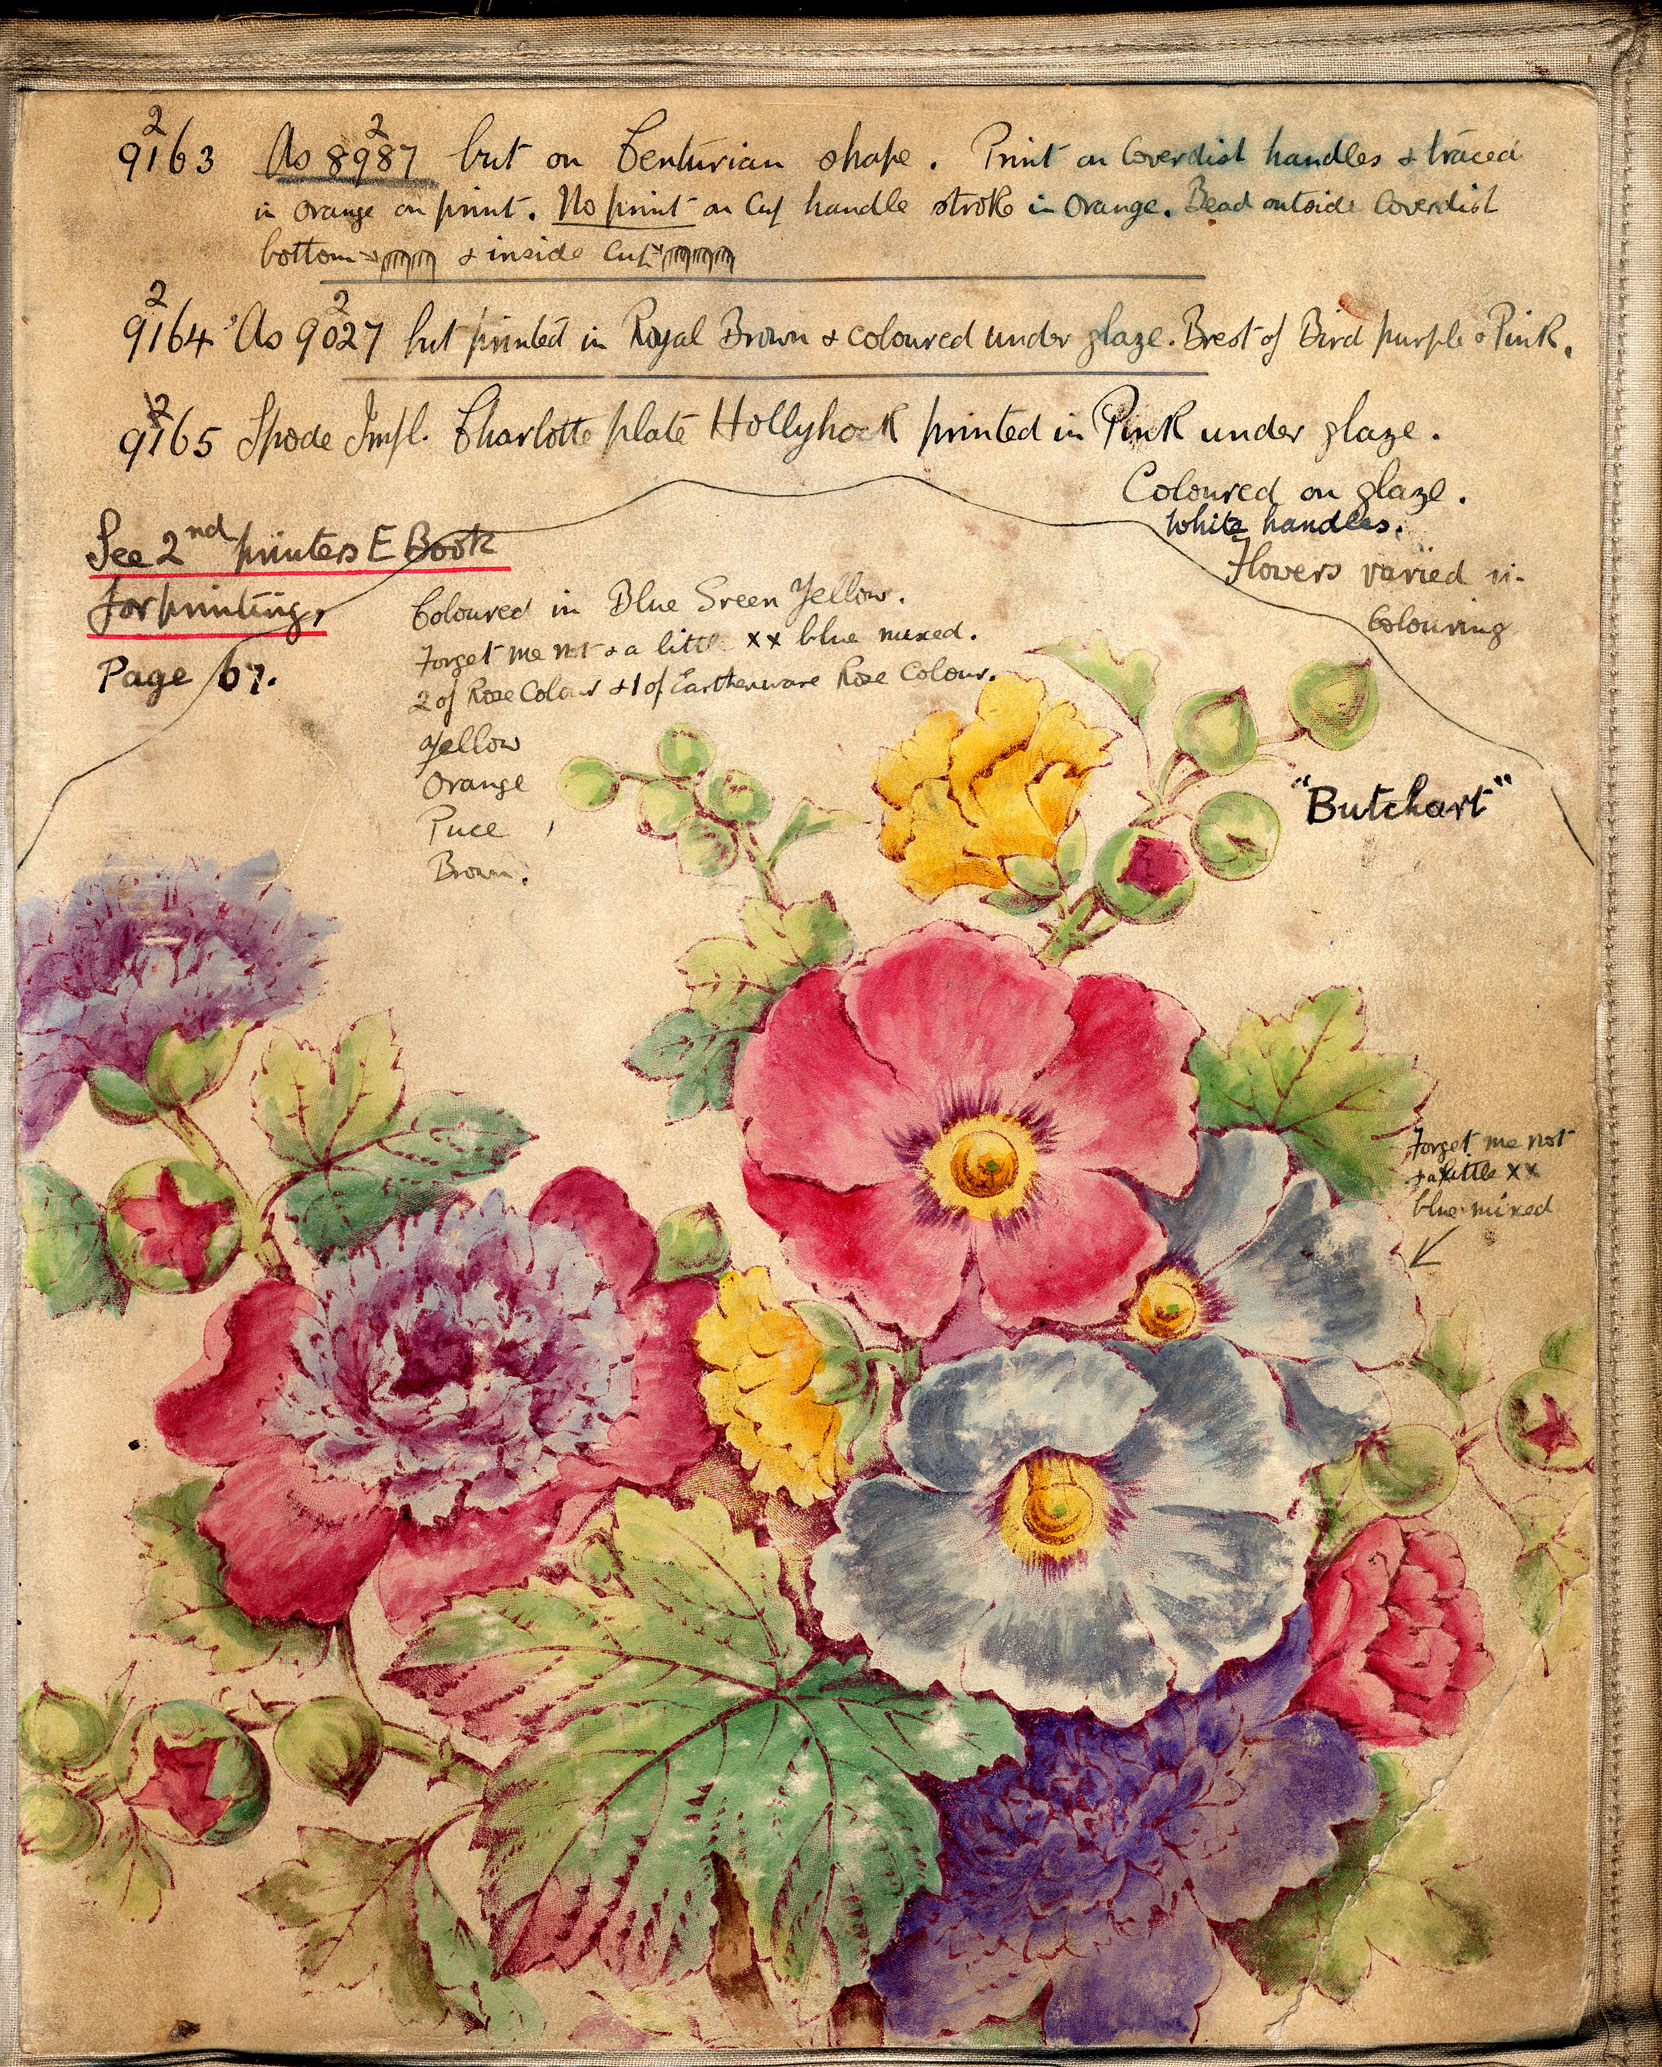 2 2
9163 As 8987 but on Centurian shape. Print on Coverdish handles & traced
in orange on print. No print on Cup handle stroke in Orange. Bead outside Coverdish
bottom & inside Cup
2 2
9164 As 9027 but printed in Royal Brown & coloured under glaze. Brest of Bird purple & Pink.
2
9165 Spode Impl. Charlotte plate Hollyhock printed in Pink under glaze.
Coloured on glaze.
White handles.
Flowers varied in
Colouring
See 2nd printers E Book
for printing,
Page 67.
Coloured in Blue Green Yellow.
Forget me not & a little xx blue mixed.
2 of Rose Colour & 1 of Earthenware Rose Colour.
Yellow
Orange
Puce
Brown.
"Butchart"
Forget me not
& a little xx
blue mixed